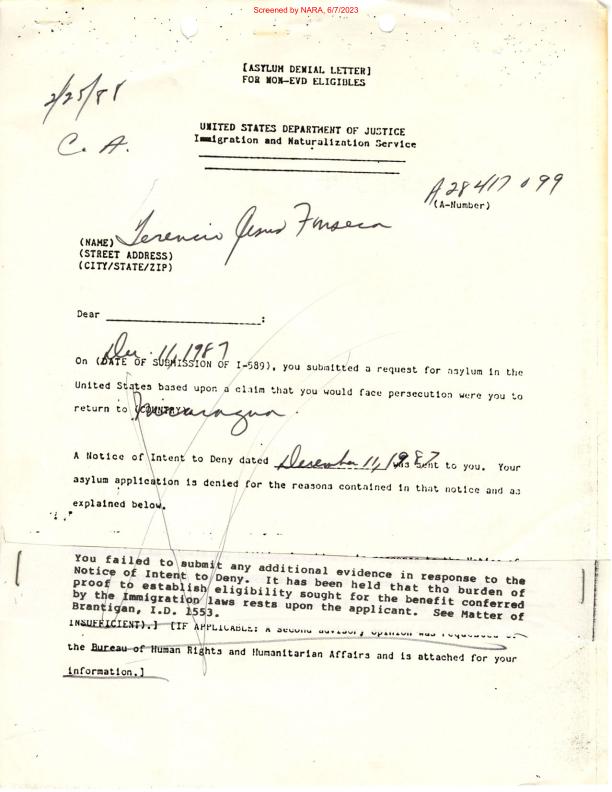 Screened by NARA, 6/7/2023
[ASYLUM DENIAL LETTER]
FOR NON-EVD ELIGIBLES
2/25/88
C. A.
UNITED STATES DEPARTMENT OF JUSTICE
Immigration and Naturalization Service
A 28 417 099
(A-Number)
(NAME) Terencio Jesus Fonseca
(STREET ADDRESS)
(CITY/STATE/ZIP)
Dear :
Dec. 11, 1987
On (DATE OF SUBMISSION OF I-589), you submitted a request for asylum in the
United States based upon a claim that you would face persecution were you to
return to (COUNTRY) Nicaragua.
A Notice of Intent to Deny dated December 11, 1987 was sent to you. Your
asylum application is denied for the reasons contained in that notice and as
explained below.
You failed to submit any additional evidence in response to the
Notice of Intent to Deny. It has been held that the burden of
proof to establish eligibility sought for the benefit conferred
by the Immigration laws rests upon the applicant. See Matter of
Brantigan, I.D. 1553.
INSUFFICIENT).] [IF APPLICABLE: A second advisory opinion was requested
the Bureau of Human Rights and Humanitarian Affairs and is attached for your
information.]